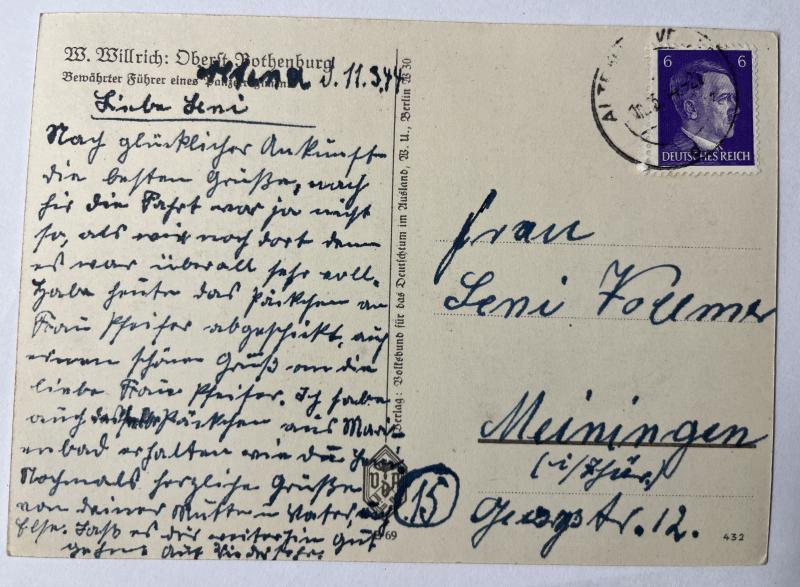 W. Willrich: Oberst Rothenburg
Bewährter Führer eines Panzerregiments
d. 11.3.44
Liebe Leni
Nach glücklicher Ankunft
die besten Grüße, nach
hir die Fahrt war ja nicht
so, als wie noch dort denn
es war überall sehr voll.
Habe heute das Päckchen an
Frau Pfeifer abgeschickt, auch
einen schönen Gruß an die
liebe Frau Pfeifer. Ich habe
auch Päckchen aus Mari-
enbad erhalten wie du
Nochmals herzliche Grüße
von deiner Mutter u Vater u
Else. Laß es dir weiterhin gut
gehen. Auf Wiedersehn.
Verlag: Volksbund für das Deutschtum im Ausland, W. U., Berlin W 30
VDA
69
6 6
DEUTSCHES REICH
Frau
Leni Vollmer
Meiningen
(i/Thür.)
15
Georgstr. 12.
432